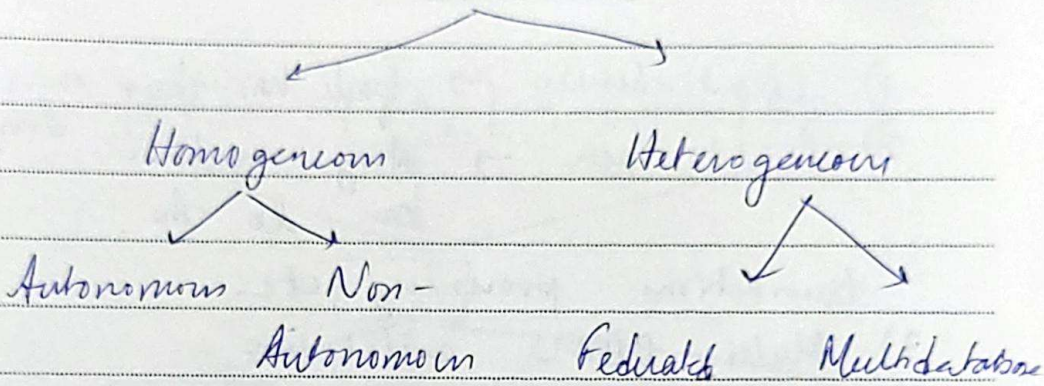 Homogeneous Heterogeneous
Autonomous Non-
Autonomous Federated Multidatabase